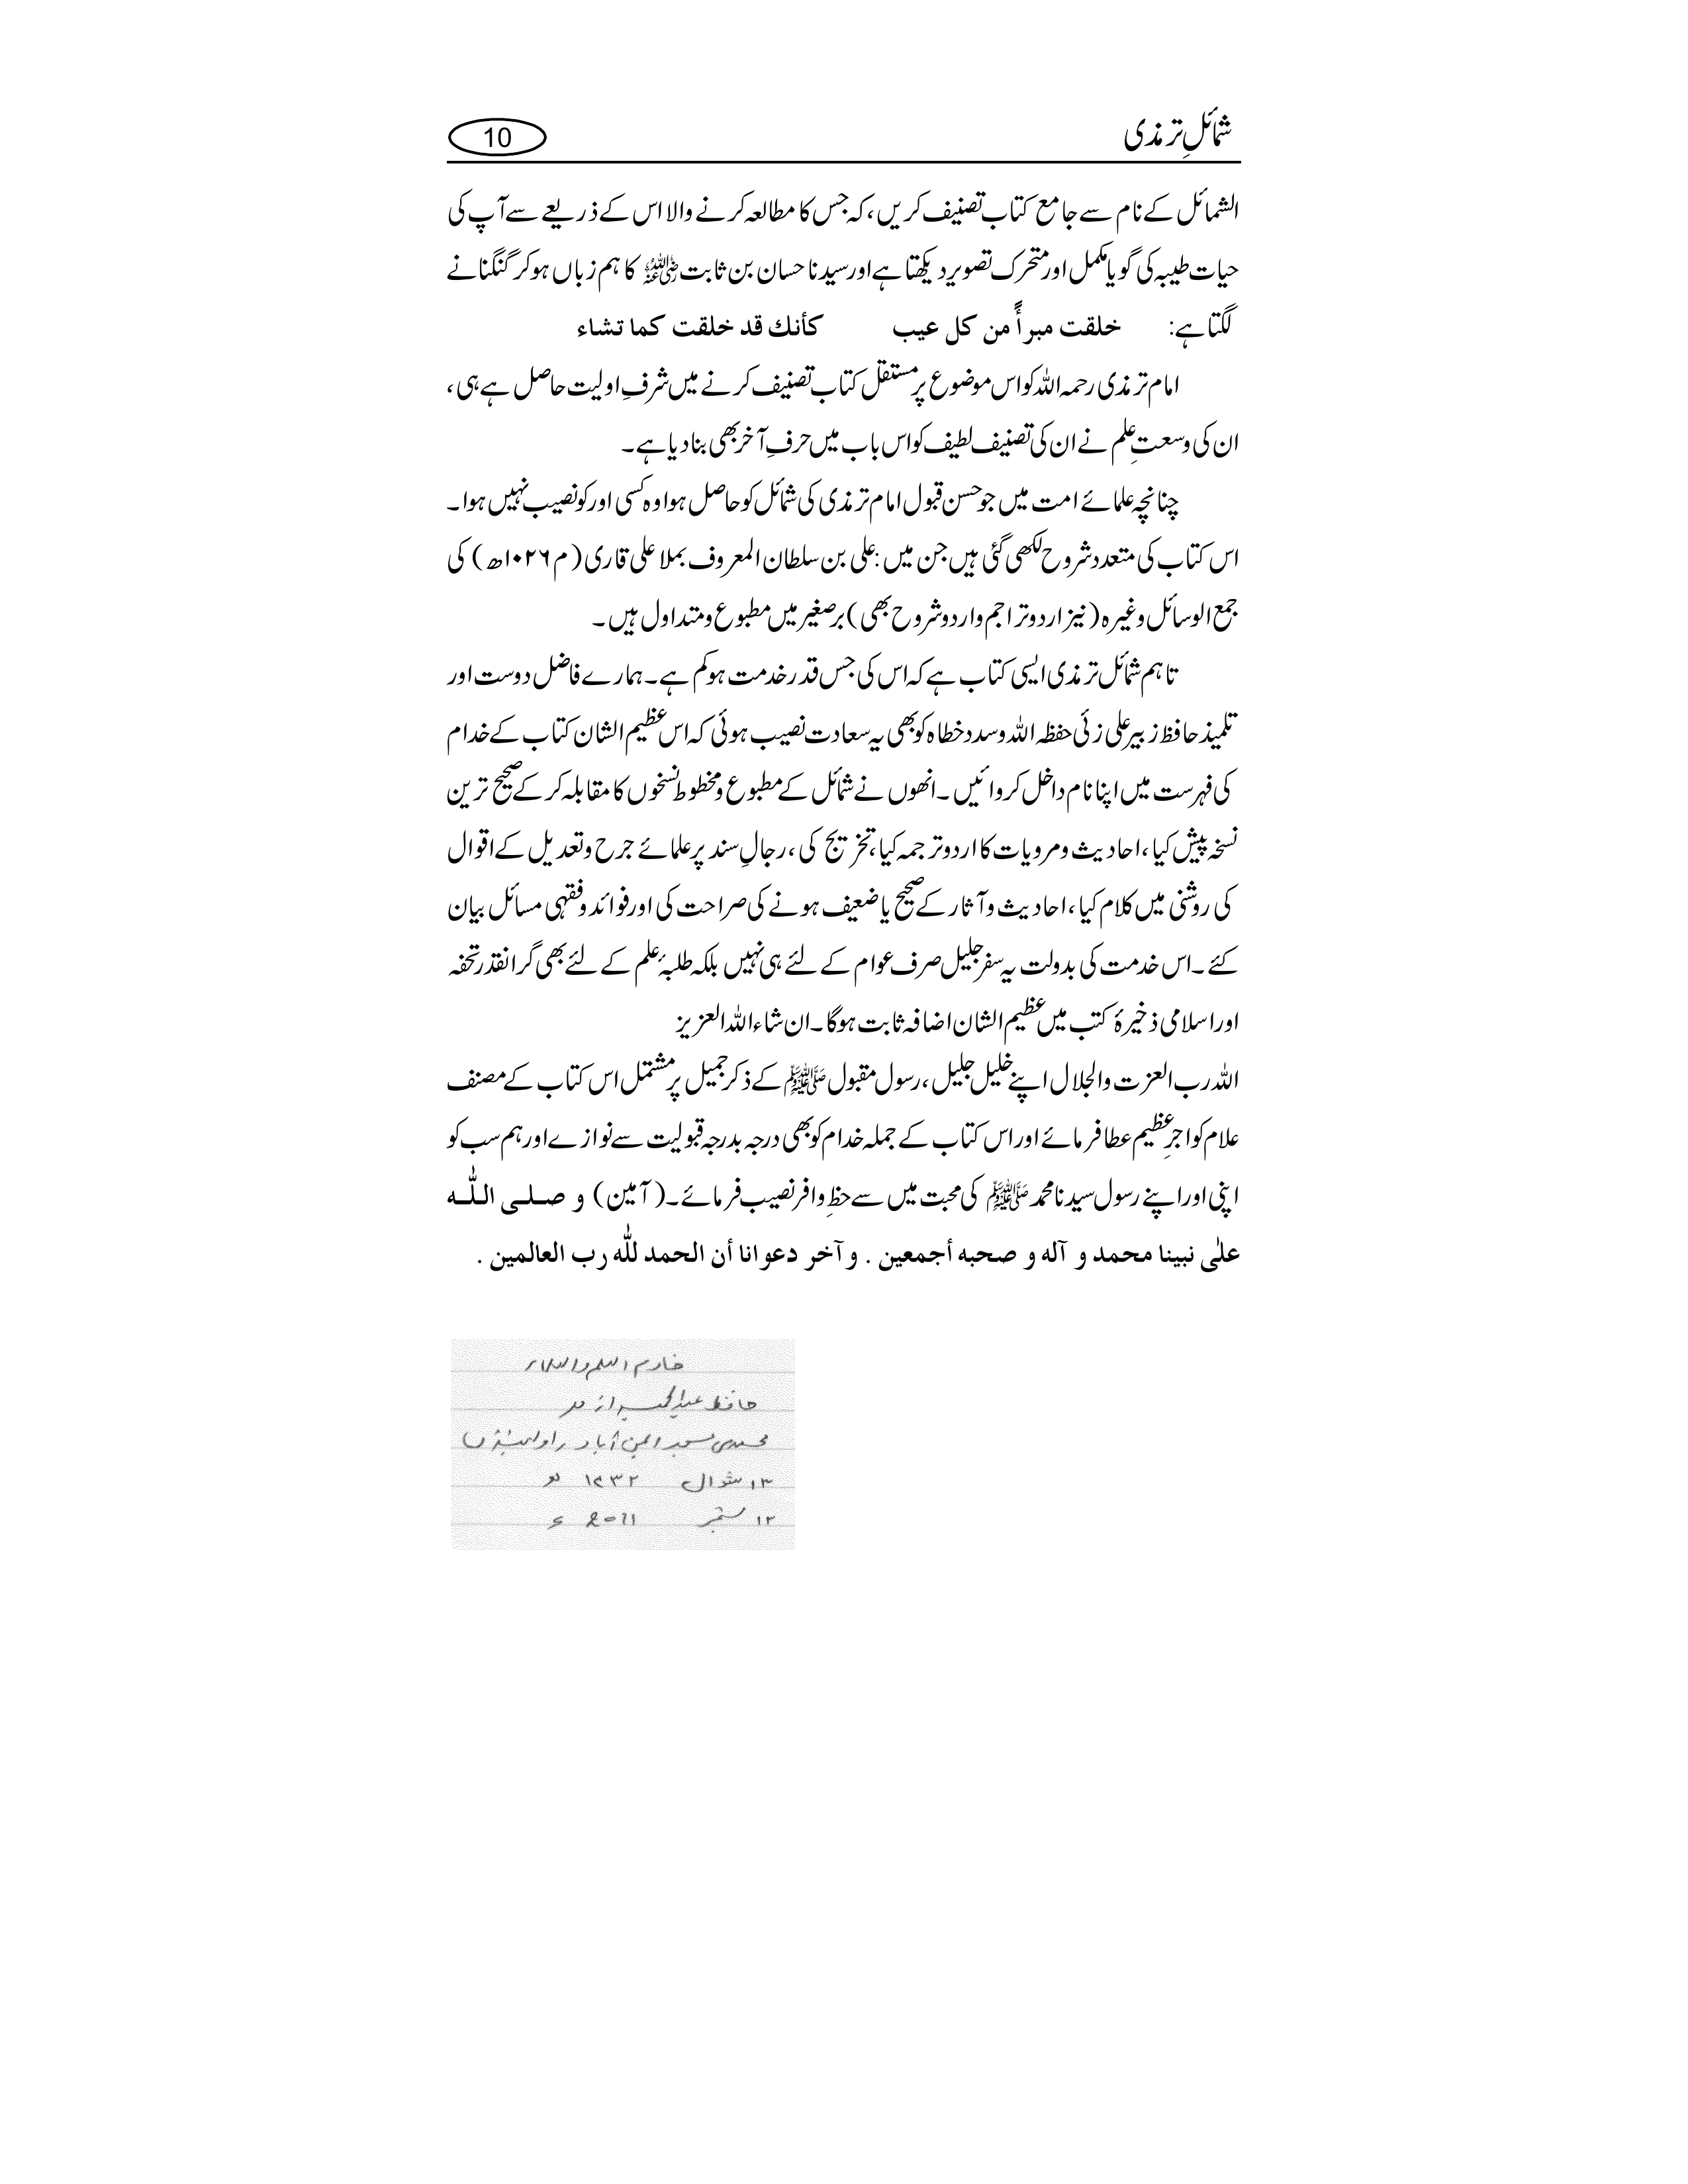 شمائلِ ترمذی
10
الشمائل کے نام سے جامع کتاب تصنیف کریں، کہ جس کا مطالعہ کرنے والا اس کے ذریعے سے آپ کی
حیات طیبہ کی گویا مکمل اور متحرک تصویر دیکھتا ہے اور سیدنا حسان بن ثابت رضی اللہ عنہ کا ہم زباں ہو کر گنگنانے
لگتا ہے: خلقت مبرأً من كل عيب كأنك قد خلقت كما تشاء
امام ترمذی رحمہ اللہ کو اس موضوع پر مستقل کتاب تصنیف کرنے میں شرفِ اولیت حاصل ہے ہی،
ان کی وسعتِ علم نے ان کی تصنیف لطیف کو اس باب میں حرفِ آخر بھی بنا دیا ہے۔
چنانچہ علمائے امت میں جو حسن قبول امام ترمذی کی شمائل کو حاصل ہوا وہ کسی اور کو نصیب نہیں ہوا۔
اس کتاب کی متعدد شروح لکھی گئی ہیں جن میں: علی بن سلطان المعروف بملا علی قاری (م ۱۰۲۶ھ) کی
جمع الوسائل وغیرہ (نیز اردو تراجم و اردو شروح بھی) برصغیر میں مطبوع و متداول ہیں۔
تاہم شمائل ترمذی ایسی کتاب ہے کہ اس کی جس قدر خدمت ہو کم ہے۔ ہمارے فاضل دوست اور
تلمیذ حافظ زبیر علی زئی حفظہ اللہ وسدد خطاہ کو بھی یہ سعادت نصیب ہوئی کہ اس عظیم الشان کتاب کے خدام
کی فہرست میں اپنا نام داخل کروائیں۔ انھوں نے شمائل کے مطبوع و مخطوط نسخوں کا مقابلہ کر کے صحیح ترین
نسخہ پیش کیا، احادیث و مرویات کا اردو ترجمہ کیا، تخریج کی، رجالِ سند پر علمائے جرح و تعدیل کے اقوال
کی روشنی میں کلام کیا، احادیث و آثار کے صحیح یا ضعیف ہونے کی صراحت کی اور فوائد و فقہی مسائل بیان
کئے۔ اس خدمت کی بدولت یہ سفر جلیل صرف عوام کے لئے ہی نہیں بلکہ طلبۂ علم کے لئے بھی گرانقدر تحفہ
اور اسلامی ذخیرۂ کتب میں عظیم الشان اضافہ ثابت ہوگا۔ ان شاء اللہ العزیز
اللہ رب العزت والجلال اپنے خلیل جلیل، رسول مقبول ﷺ کے ذکر جمیل پر مشتمل اس کتاب کے مصنف
علام کو اجرِ عظیم عطا فرمائے اور اس کتاب کے جملہ خدام کو بھی درجہ بدرجہ قبولیت سے نوازے اور ہم سب کو
اپنی اور اپنے رسول سیدنا محمد ﷺ کی محبت میں سے حظِ وافر نصیب فرمائے۔ (آمین) و صلى اللّٰه
علٰى نبينا محمد و آله و صحبه أجمعين . و آخر دعوانا أن الحمد للّٰه رب العالمين .
خادم العلم والعلماء
حافظ عبدالحمید ازہر
محمدی مسجد راولپنڈی
۱۳ شوال ۱۴۳۲ ھ
۱۲ ستمبر 2011 ء